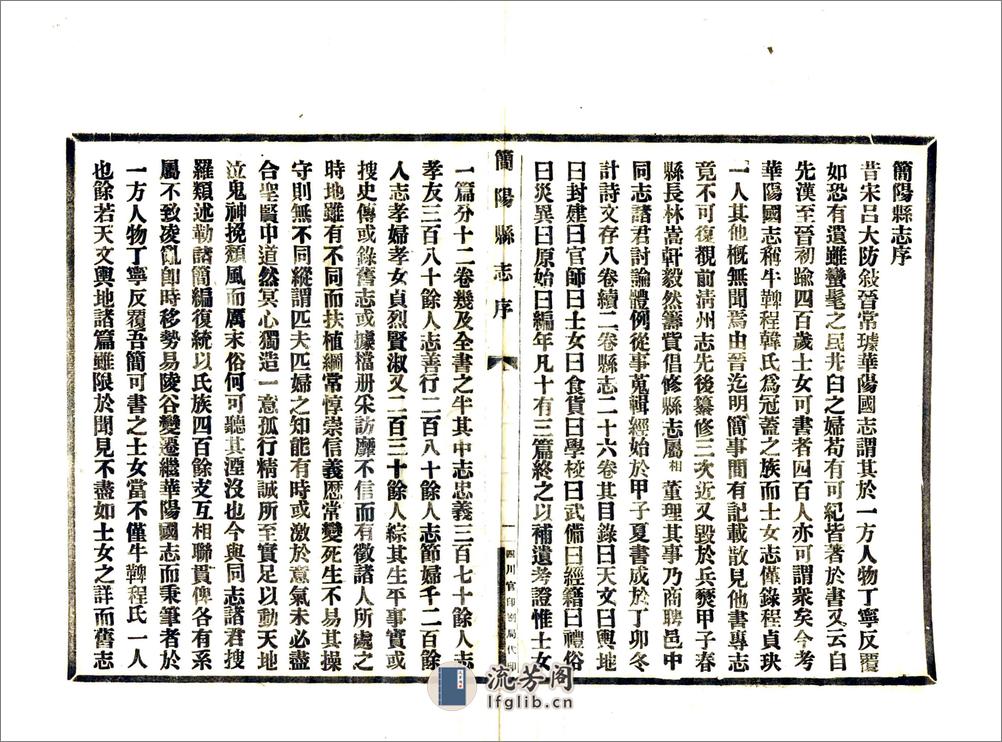 簡陽縣志序
昔宋呂大防敍晉常璩華陽國志謂其於一方人物丁寧反覆
如恐有遺雖蠻髦之民井臼之婦苟有可紀皆著於書又云自
先漢至晉初踰四百歲士女可書者四百人亦可謂衆矣今考
華陽國志稱牛鞞程韓氏爲冠蓋之族而士女志僅錄程貞玦
一人其他槪無聞焉由晉迄明簡事間有記載散見他書專志
竟不可復覩前淸州志先後纂修三次近又毀於兵燹甲子春
縣長林嵩軒毅然籌貲倡修縣志屬相董理其事乃商聘邑中
同志諸君討論體例從事蒐輯經始於甲子夏書成於丁卯冬
計詩文存八卷續二卷縣志二十六卷其目錄曰天文曰輿地
曰封建曰官師曰士女曰食貨曰學校曰武備曰經籍曰禮俗
曰災異曰原始曰編年凡十有三篇終之以補遺考證惟士女
簡陽縣志序
一
四川官印刷局代印
一篇分十二卷幾及全書之半其中志忠義三百七十餘人志
孝友三百八十餘人志善行二百八十餘人志節婦千二百餘
人志孝婦孝女貞烈賢淑又二百三十餘人綜其生平事實或
搜史傳或錄舊志或據檔册采訪靡不信而有徵諸人所處之
時地雖有不同而扶植綱常惇崇信義歷常變死生不易其操
守則無不同縱謂匹夫匹婦之知能有時或激於意氣未必盡
合聖賢中道然冥心獨造一意孤行精誠所至實足以動天地
泣鬼神挽頹風而厲末俗何可聽其湮沒也今與同志諸君搜
羅類述勒諸簡編復統以氏族四百餘支互相聯貫俾各有系
屬不致凌亂卽時移勢易陵谷變遷繼華陽國志而秉筆者於
一方人物丁寧反覆吾簡可書之士女當不僅牛鞞程氏一人
也餘若天文輿地諸篇雖限於聞見不盡如士女之詳而舊志
流芳阁
lfglib.cn